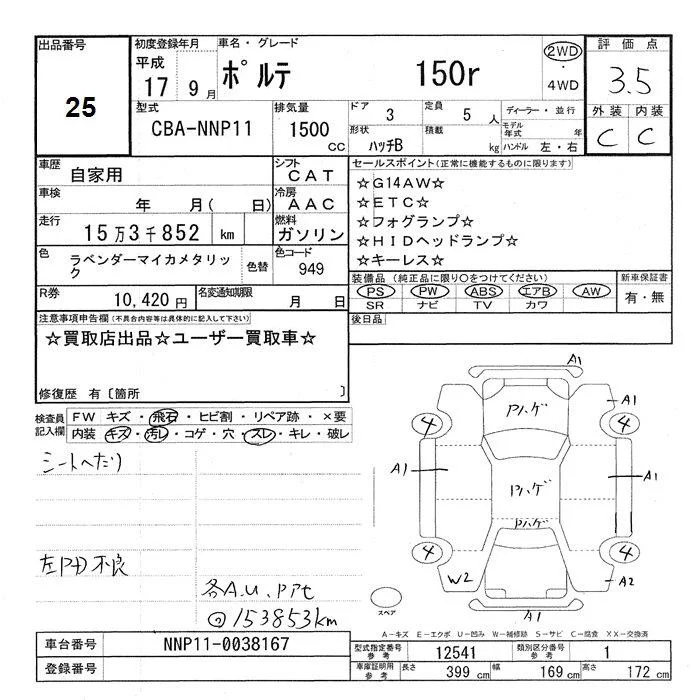 出品番号
25
初度登録年月
平成
17 9月
車名・グレード
ポルテ 150r
2WD
・
4WD
評価点
3.5
型式
CBA-NNP11
排気量
1500
CC
ドア
3
定員
5 人
ディーラー・並行
形状
ハッチB
積載
kg
モデル
年式 年
ハンドル 左・右
外装 内装
C C
車歴
自家用
シフト
CAT
車検
年 月( 日)
冷房
AAC
走行
15万3千852 km
燃料
ガソリン
色
ラベンダーマイカメタリッ
ク
色替
色コード
949
R券
10,420円
名変通知期限
月 日
セールスポイント(正常に機能するものに限ります)
☆G14AW☆
☆ETC☆
☆フォグランプ☆
☆HIDヘッドランプ☆
☆キーレス☆
装備品 (純正品に限り○をつけてください)
PS PW ABS エアB AW
SR ナビ TV カワ
新車保証書
有・無
後日品
注意事項申告欄(不具合内容等は具体的に記入して下さい)
☆買取店出品☆ユーザー買取車☆
修復歴 有〔箇所 〕
検査員
記入欄
FW キズ・飛石・ヒビ割・リペア跡・×要
内装 キズ・汚レ・コゲ・穴・スレ・キレ・破レ
シートヘタリ
左PD不良
各A.U.PPt
◎153853km
A1
Pハゲ
A1
4
4
A1
Pハゲ
A1
Pハゲ
4
4
W2
A2
A1
スペア
A-キズ E-エクボ U-凹み W-補修跡 S-サビ C-腐食 XX-交換済
車台番号
NNP11-0038167
登録番号
型式指定番号
参考
12541
類別区分番号
参考
1
車庫証明用
参考
長さ
399 cm
幅
169 cm
高さ
172 cm